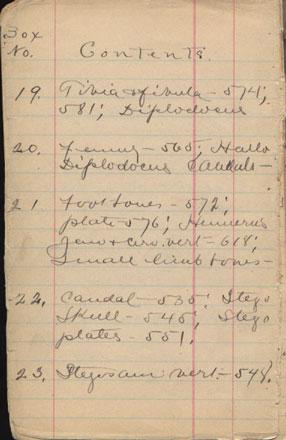 Box
No. Contents.
19. Tibia & fibula - 574;
581; Diplodocus
20. Femur - 565; Hallo
Diplodocus Caudals -
21 Foot bones - 572;
plate 576; Humerus
Jaw & cerv. vert - 618;
Small limb bones -
22. Caudal - 535; Stego
Skull - 545; Stego
plates - 551;
23. Stegosaur vert. - 548.